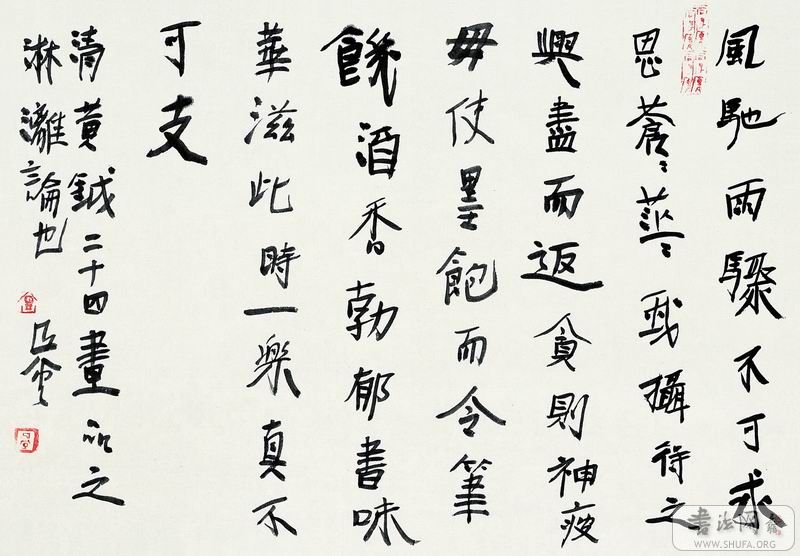 風馳雨驟不可求
思蒼〻茫〻我攝得之
興盡而返貪則神疲
毋使墨飽而令筆
饑酒香勃郁書味
華滋此時一樂真不
可支
清黃鉞二十四畫品之
淋漓論也
書法网
WWW.SHUFA.ORG